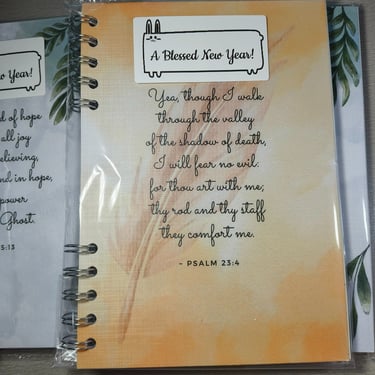 w Year!
d of hope
all joy
elieving,
nd in hope,
power
Ghost.
5:13
A Blessed New Year!
Yea, though I walk
through the valley
of the shadow of death,
I will fear no evil:
for thou art with me;
thy rod and thy staff
they comfort me.
- PSALM 23:4